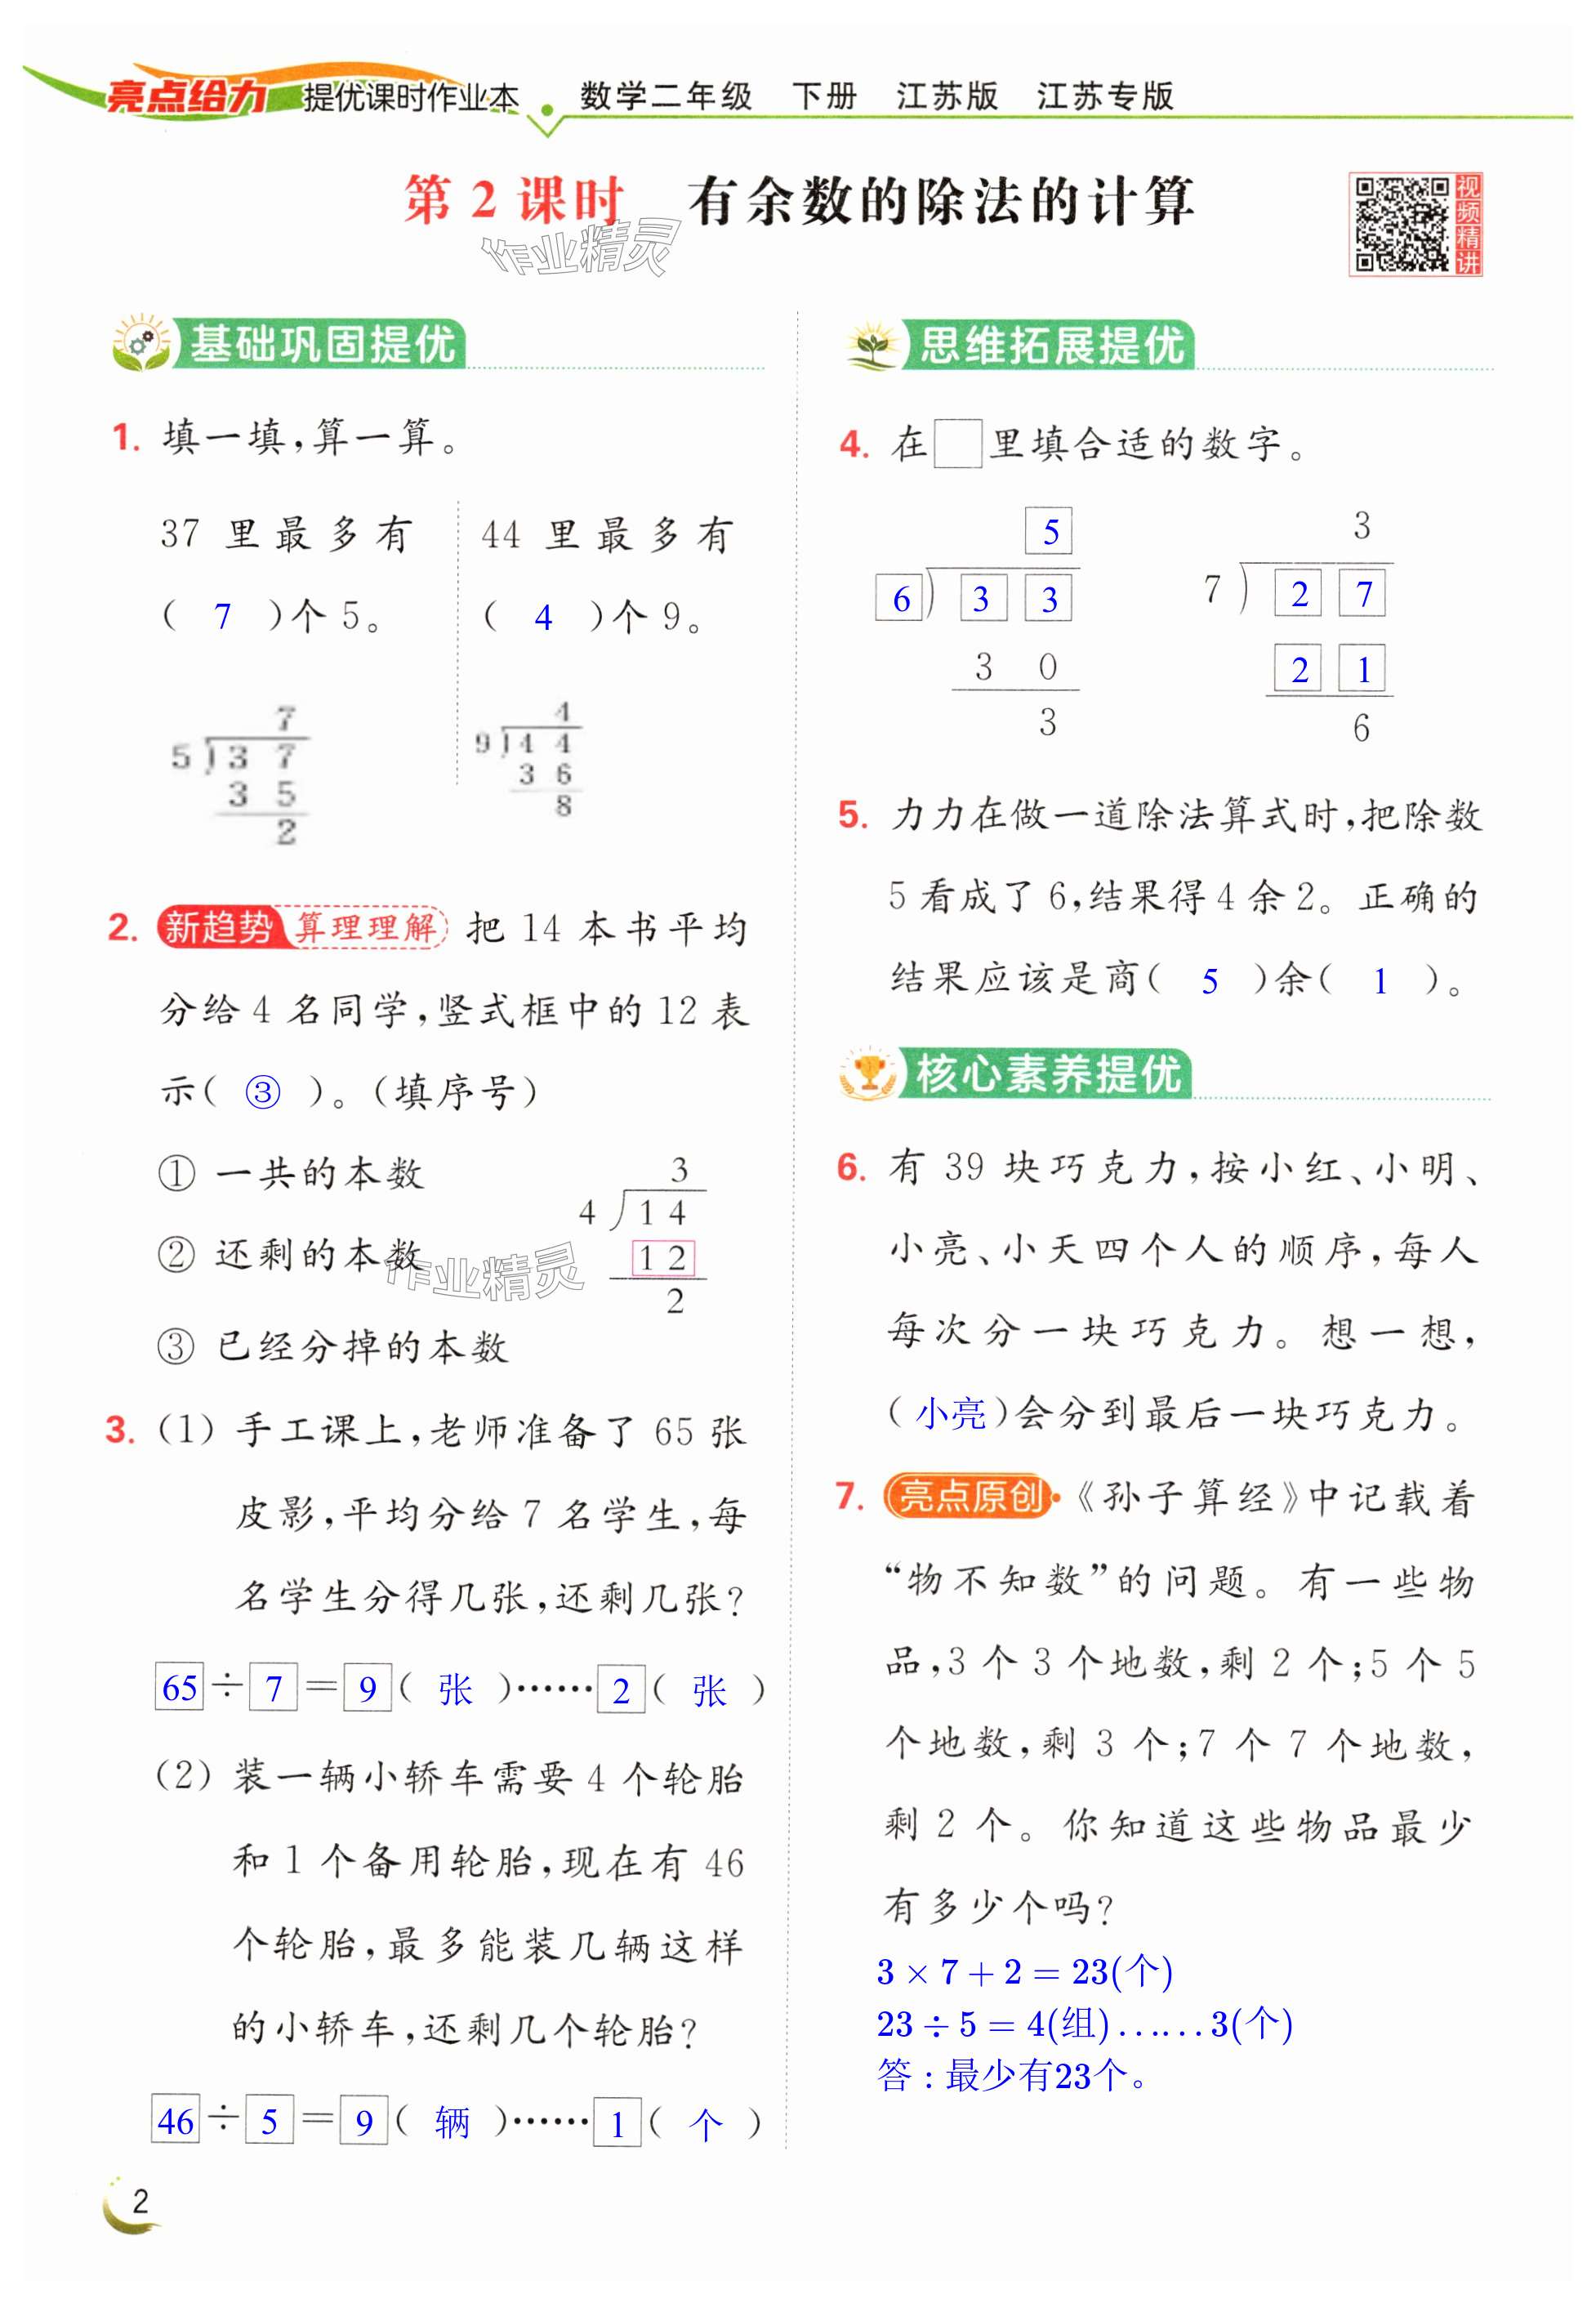 亮点给力 提优课时作业本 数学二年级 下册 江苏版 江苏专版
第 2 课时 有余数的除法的计算
视频精讲
作业精灵
基础巩固提优
1. 填一填,算一算。
37 里最多有
( 7 )个 5。
44 里最多有
( 4 )个 9。
7
5 ) 3 7
3 5
2
4
9 ) 4 4
3 6
8
2. 新趋势 算理理解 把 14 本书平均
分给 4 名同学,竖式框中的 12 表
示( ③ )。(填序号)
① 一共的本数
② 还剩的本数
③ 已经分掉的本数
3
4 ) 1 4
1 2
2
作业精灵
3. (1) 手工课上,老师准备了 65 张
皮影,平均分给 7 名学生,每
名学生分得几张,还剩几张?
65 ÷ 7 = 9 ( 张 )…… 2 ( 张 )
(2) 装一辆小轿车需要 4 个轮胎
和 1 个备用轮胎,现在有 46
个轮胎,最多能装几辆这样
的小轿车,还剩几个轮胎?
46 ÷ 5 = 9 ( 辆 )…… 1 ( 个 )
思维拓展提优
4. 在□里填合适的数字。
5
6 ) 3 3
3 0
3
3
7 ) 2 7
2 1
6
5. 力力在做一道除法算式时,把除数
5 看成了 6,结果得 4 余 2。正确的
结果应该是商( 5 )余( 1 )。
核心素养提优
6. 有 39 块巧克力,按小红、小明、
小亮、小天四个人的顺序,每人
每次分一块巧克力。想一想,
( 小亮 )会分到最后一块巧克力。
7. 亮点原创·《孙子算经》中记载着
“物不知数”的问题。有一些物
品,3 个 3 个地数,剩 2 个;5 个 5
个地数,剩 3 个;7 个 7 个地数,
剩 2 个。你知道这些物品最少
有多少个吗?
3 × 7 + 2 = 23(个)
23 ÷ 5 = 4(组)……3(个)
答:最少有23个。
2